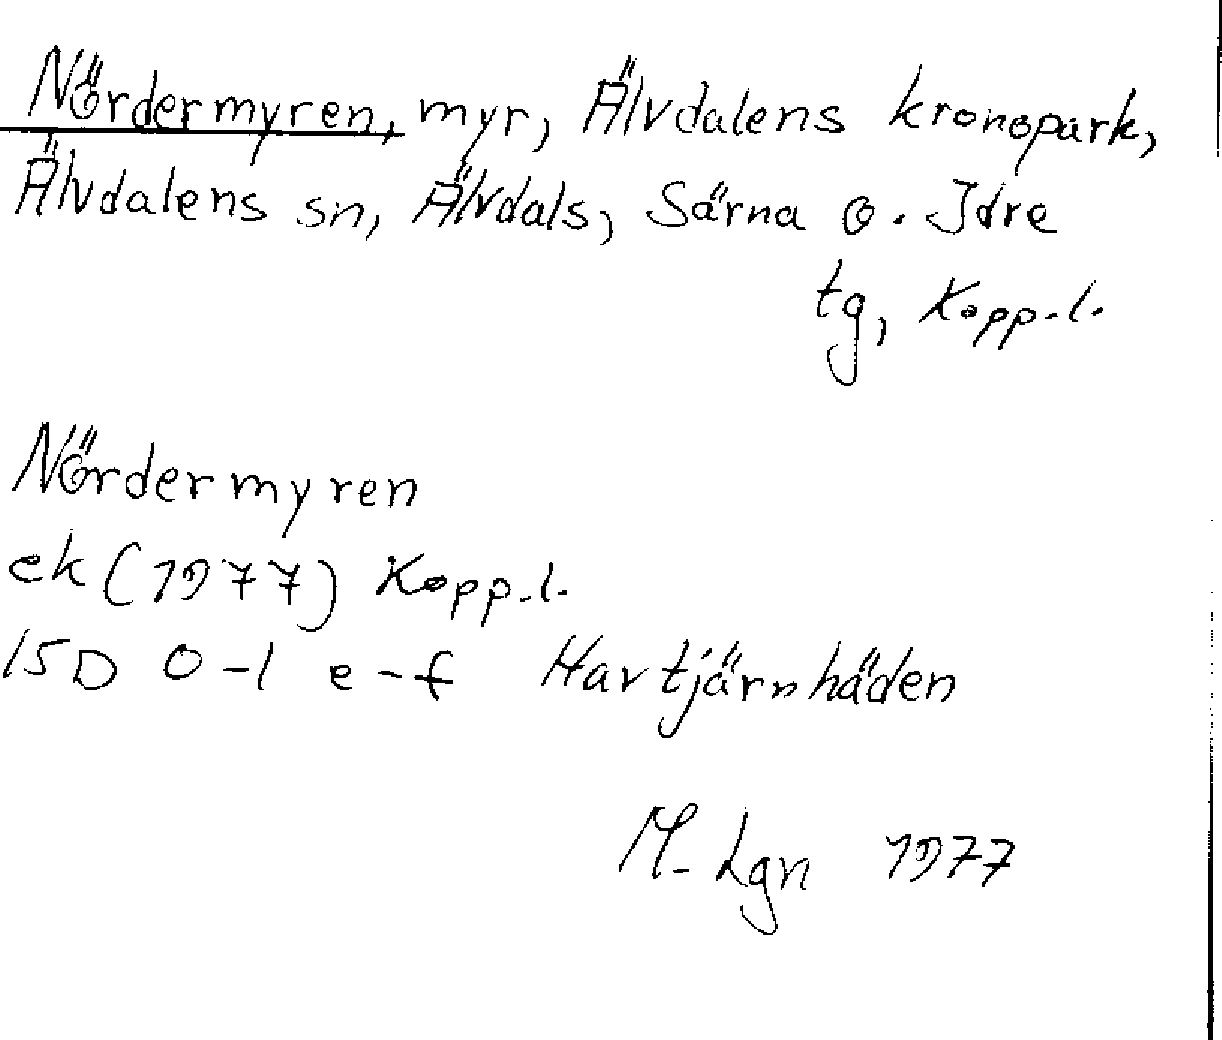 Nördermyren, myr, Älvdalens kronopark,
Älvdalens sn, Älvdals, Särna o. Idre
tg, Kopp.l.
Nördermyren
ek (1977) Kopp.l.
15D 0-1 e-f Havtjärnhäden
M-Lgn 1977